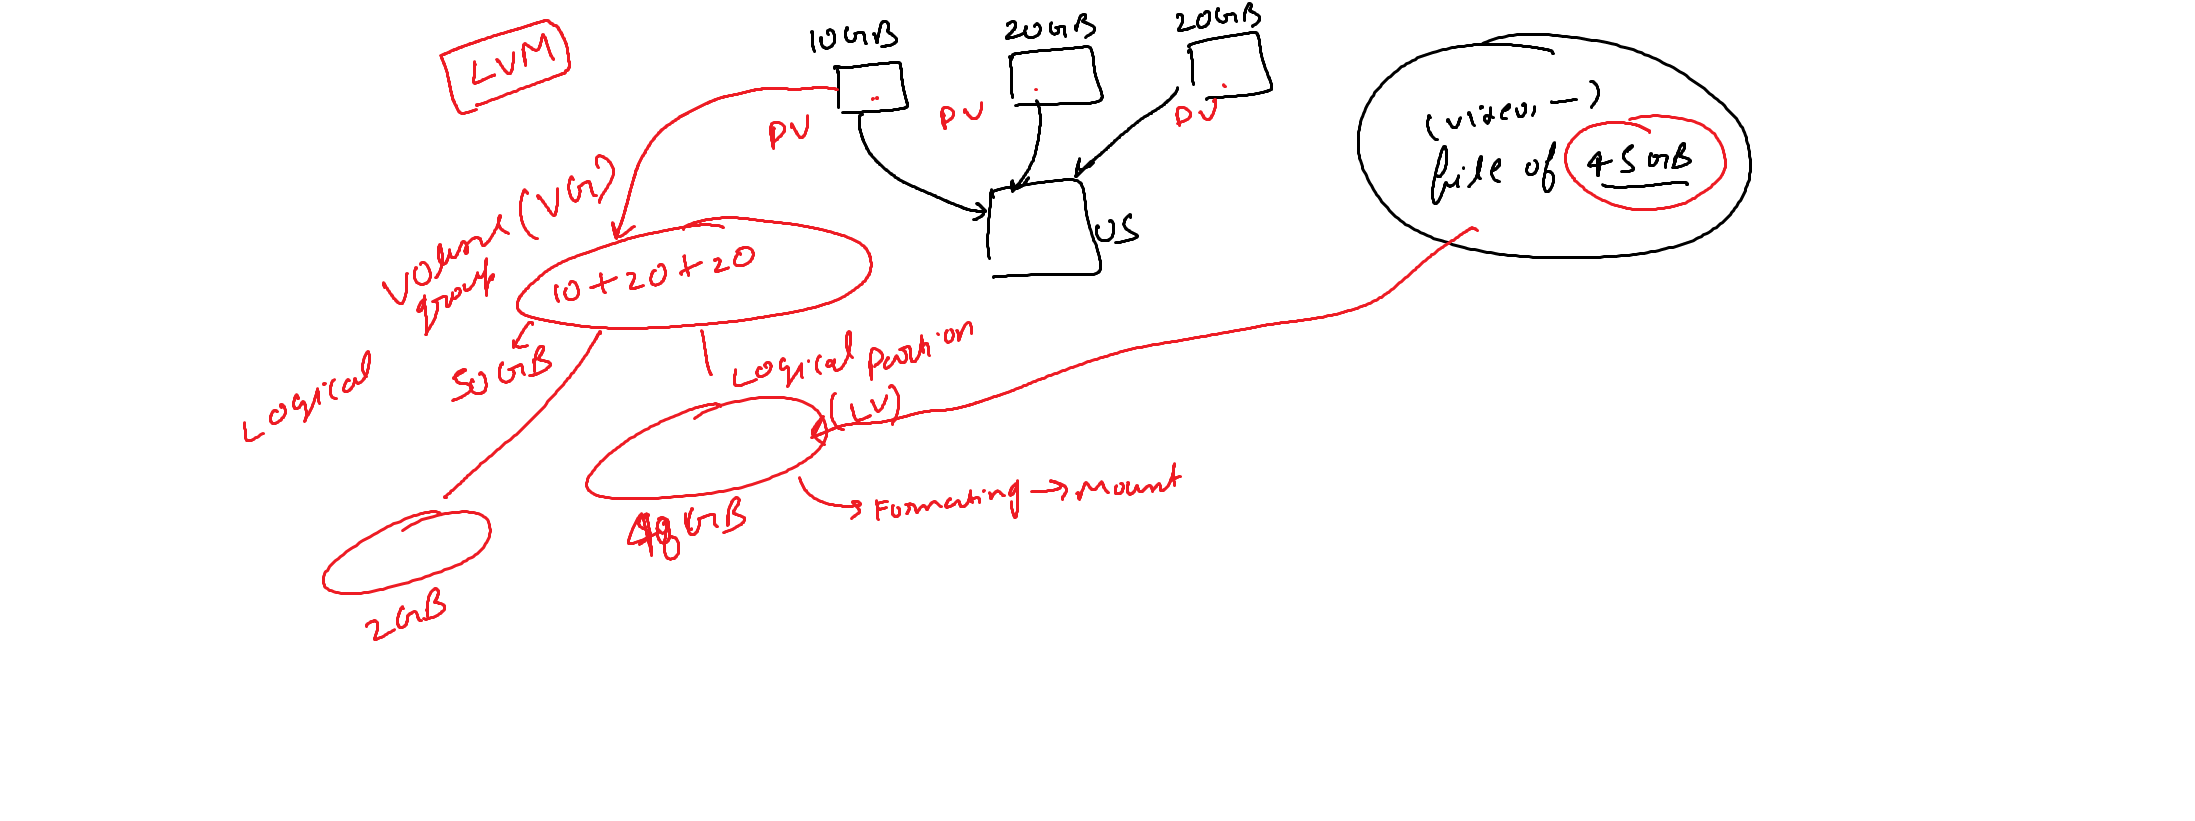 LVM
10GB
20GB
20GB
PV
PV
PV
OS
(video, —)
file of 45GB
Volume (VG)
group
10+20+20
50GB
Logical
Logical partion
(LV)
48GB
Formating → Mount
2GB